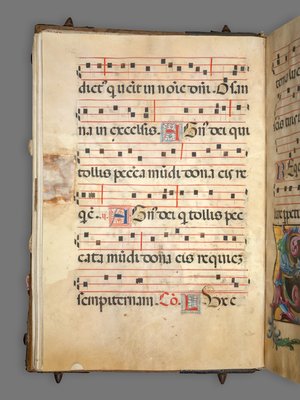 dict⁹ q̄ uēīt in noīe dn̄i. Osan
na in excelsis. Agn⁹ dei qui
tollis pecca mūdi dona eis re
quē. ij. Agn⁹ dei q̄ tollis pec
cata mūdi dona eis requiez
sempiternam. Cō. Lux e